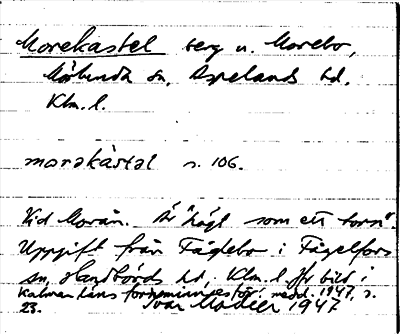 Morekastel berg n. Morebo,
Mörlunda sn, Aspelands hd.
Klm. l.
morakàstəl s. 106.
Vid Morån. Är "högt som ett torn".
Uppgift från Fåglebo i Fågelfors
sn, Handbörds hd, Klm. l. Jfr bild i
Kalmar läns fornminnesför:s medd. 1947, s.
23. Ivar Modéer 1947